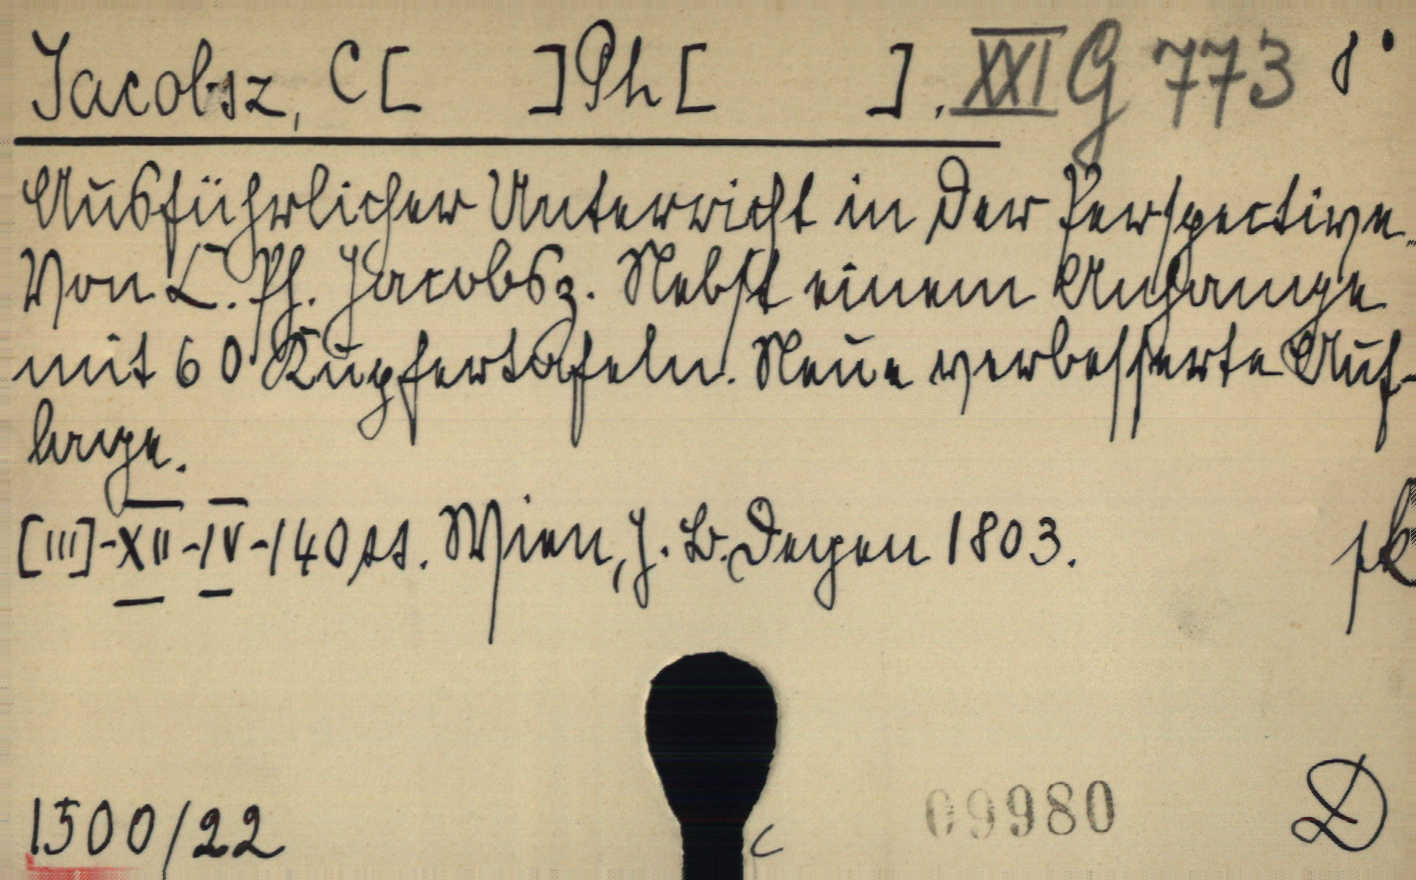 Jacobsz, C[ ]Ph[ ]. XXI G 773 8°
Ausführlicher Unterricht in der Perspective.
Von C. Ph. Jacobsz. Nebst einem Anhange
mit 60 Kupfertafeln. Neue verbesserte Auf-
lage.
[III]-XII-IV-140 ss. Wien, J. B. Degen 1803.
1500/22
c
09980
D